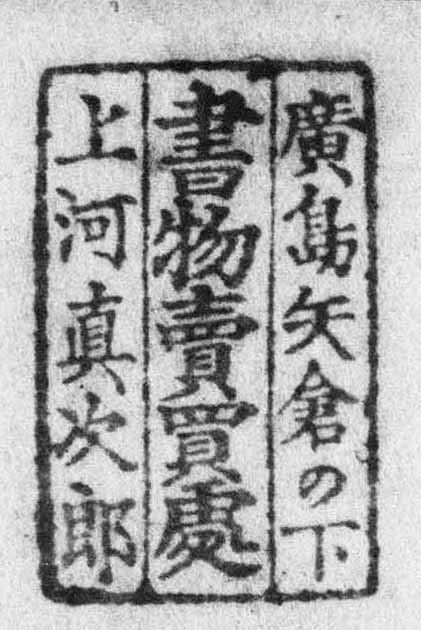 廣島矢倉の下
書物賣買處
上河真次郎